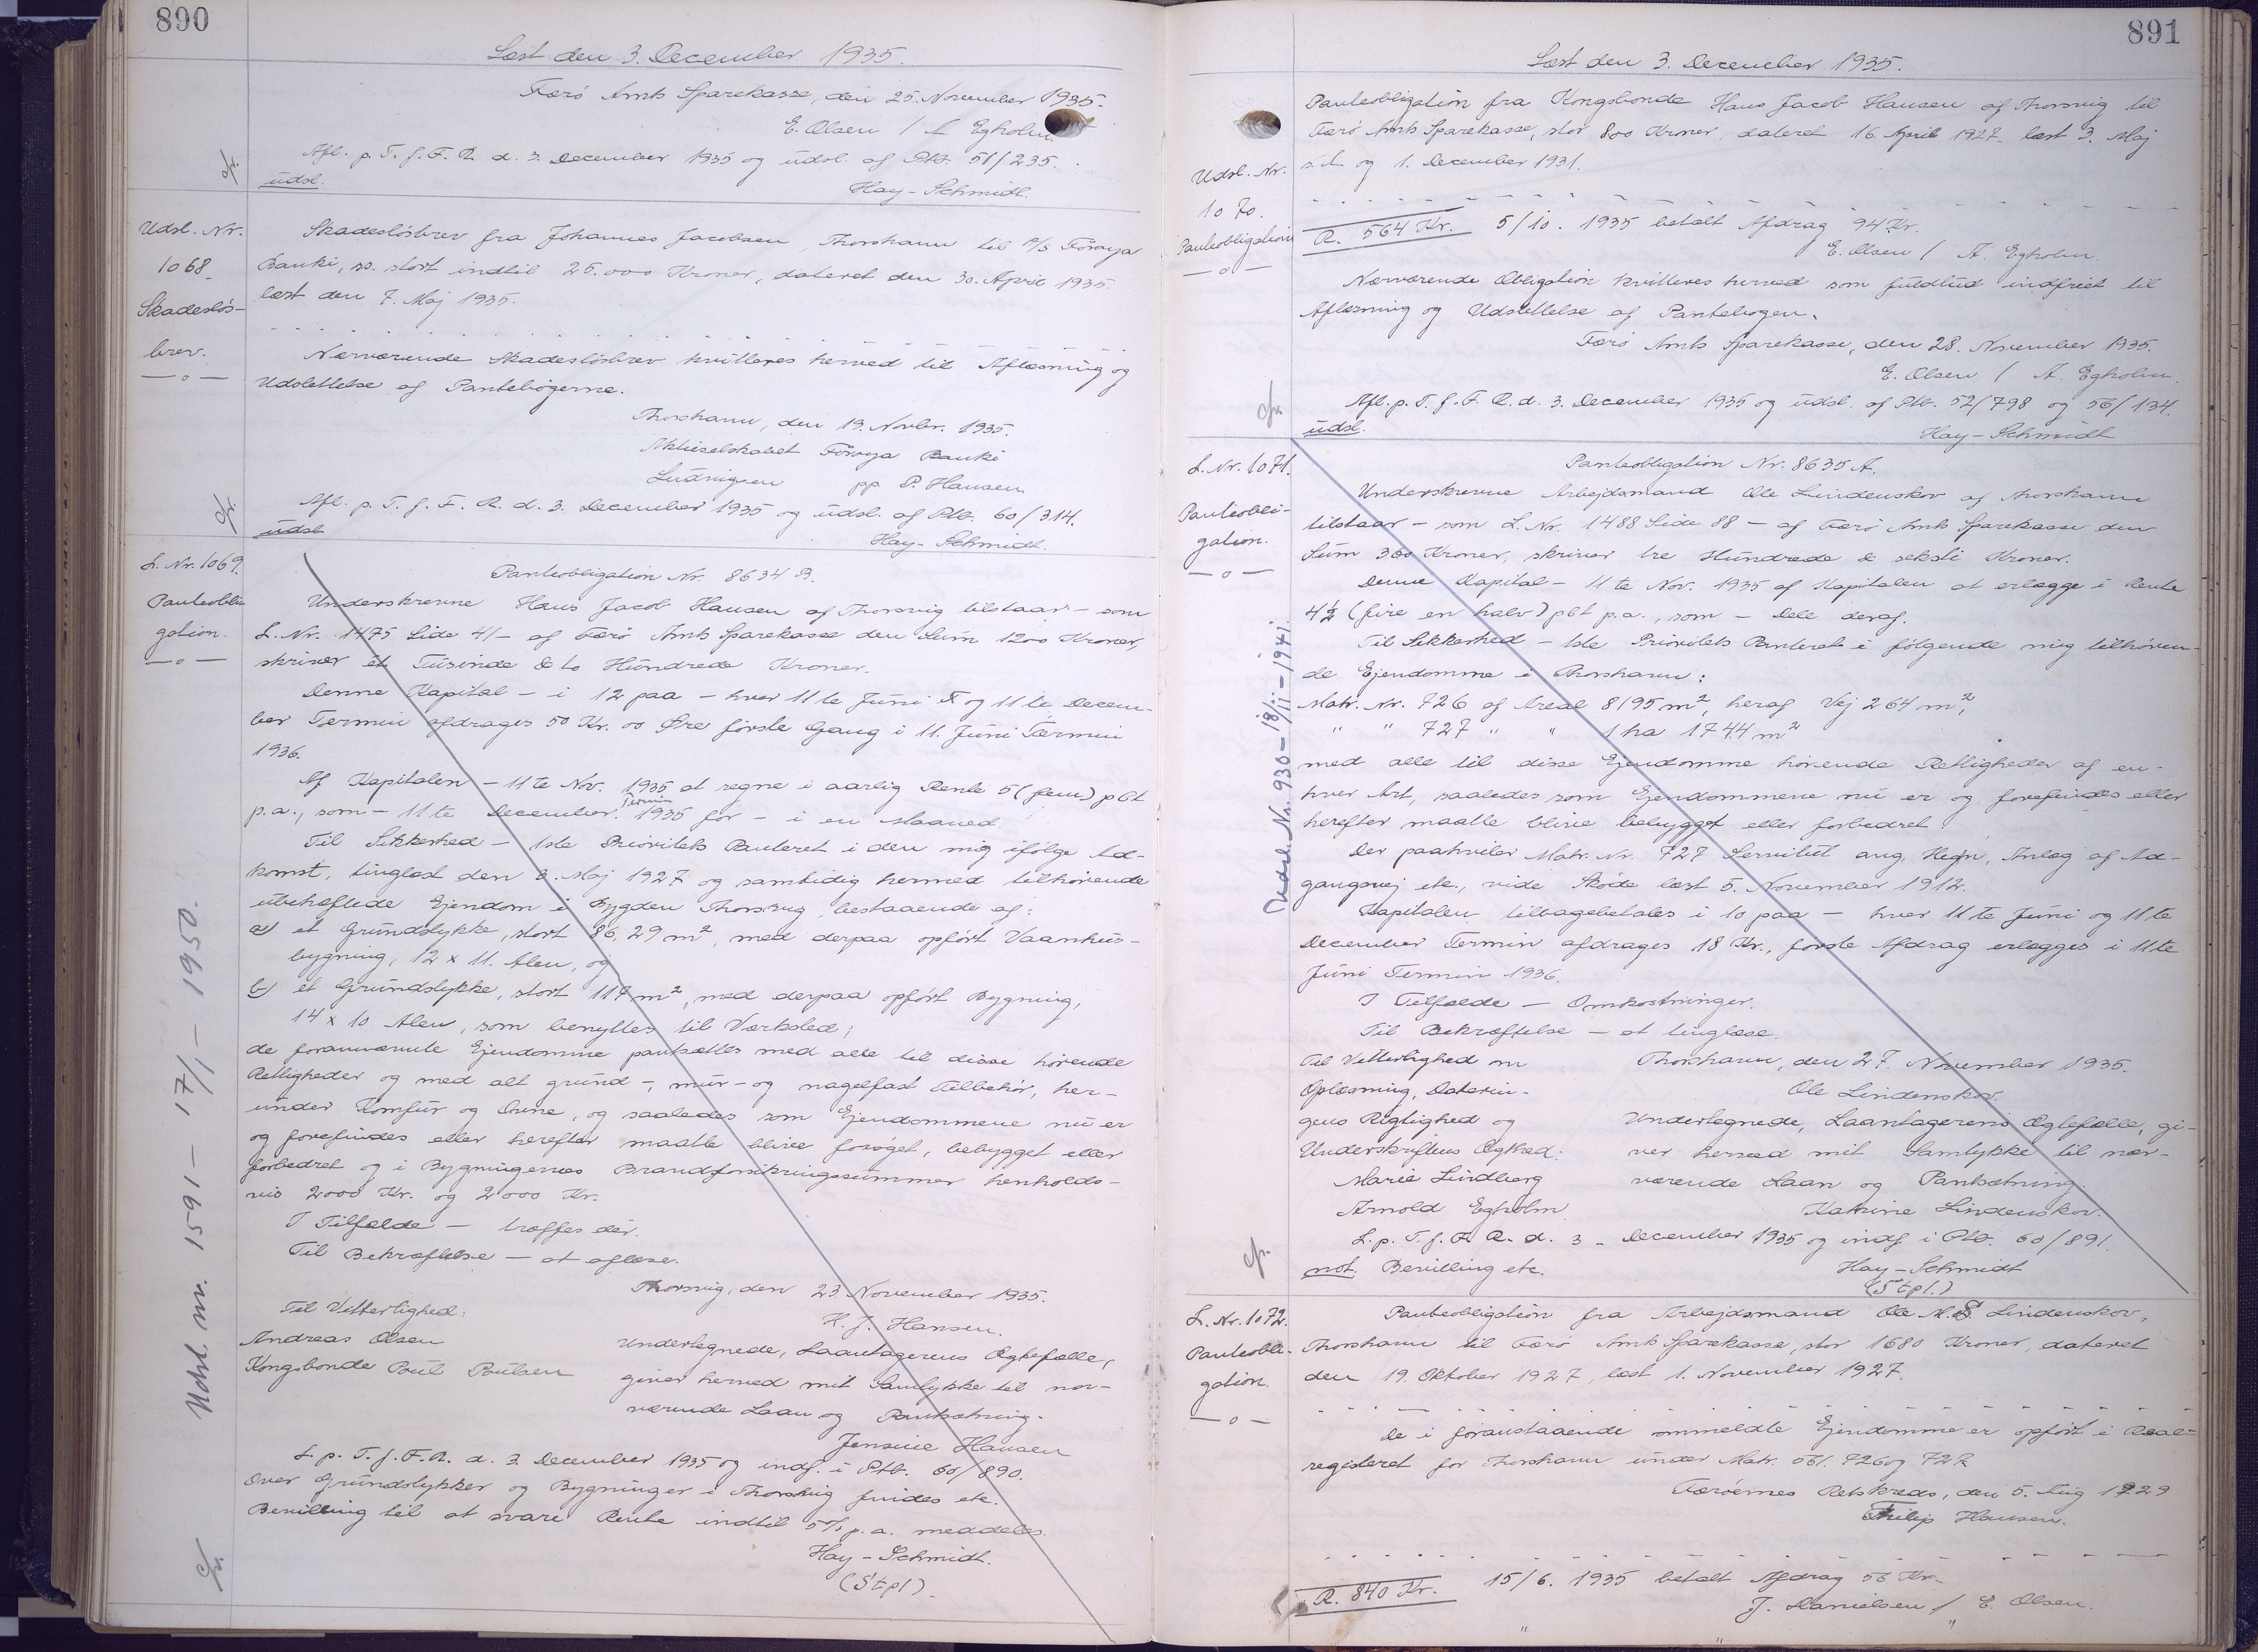 890
Læst den 3. December 1935.
Færø Amts Sparekasse, den 25. November 1935.
E. Olsen / A. Egholm
Afl. p. T. f. F. R. d. 3. December 1935 og udsl. af Ptb. 51/235.
udsl.
Hay-Schmidt.
Udsl. Nr.
1068.
Skadesløs-
brev.
— o —
Skadesløsbrev fra Johannes Jacobsen, Thorshavn til A/S Föroya
Banki, ss. stort indtil 25.000 Kroner, dateret den 30. April 1935
læst den 7. Maj 1935.
Nærværende Skadesløsbrev kvitteres herved til Aflæsning og
Udslettelse af Pantebøgerne.
Thorshavn, den 19. Novbr. 1935.
Aktieselskabet Föroya Banki
Ludvigsen pp P. Hansen
Afl. p. T. f. F. R. d. 3. December 1935 og udsl. af Ptb. 60/314.
udsl.
Hay-Schmidt.
L. Nr. 1069.
Panteobli-
gation.
— o —
Panteobligation Nr. 8634 B.
Underskrevne Hans Jacob Hansen af Thorsvig tilstaar – som
L. Nr. 1475 Side 41 – af Færø Amts Sparekasse den Sum 1200 Kroner,
skriver ét Tusinde & to Hundrede Kroner.
Denne Kapital – i 12 paa – hver 11te Juni & og 11te Decem-
ber Termin afdrages 50 Kr. 00 Øre første Gang i 11. Juni Termin
1936.
Af Kapitalen – 11te Nov. 1935 at regne i aarlig Rente 5 (fem) pCt
p.a., som – 11te December Termin 1935 for – i en Maaned.
Til Sikkerhed – 1ste Prioritets Panteret i den mig ifølge Ad-
komst, tinglæst den 3. Maj 1927 og samtidig hermed tilhørende
ubehæftede Ejendom i Bygden Thorsvig, bestaaende af:
a) et Grundstykke, stort 86,29 m², med derpaa opført Vaanhus-
bygning, 12 x 11. Alen, og
b) et Grundstykke, stort 117 m², med derpaa opført Bygning,
14 x 10 Alen, som benyttes til Værksted;
de forannævnte Ejendomme pantsættes med alle til disse hørende
Rettigheder og med alt grund-, mur- og nagelfast Tilbehør, her-
under Komfur og Ovne, og saaledes som Ejendommene nu er
og forefindes eller herefter maatte blive forøget, bebygget eller
forbedret og i Bygningernes Brandforsikringssummer henholds-
vis 2000 Kr. og 2000 Kr.
I Tilfælde – træffes dér.
Til Bekræftelse – at aflæse.
Thorsvig, den 23. November 1935.
H. J. Hansen.
Til Vitterlighed:
Andreas Olsen
Kongsbonde Poul Poulsen
Undertegnede, Laantagerens Ægtefælle,
giver herved mit Samtykke til nær-
værende Laan og Pantsætning.
Jensine Hansen
L. p. T. f. F. R. d. 3 December 1935 og indf. i Ptb. 60/890.
Over Grundstykker og Bygninger i Thorsvig findes etc.
Bevilling til at svare Rente indtil 5% p.a. meddeles.
Hay-Schmidt.
(Stpl).
Udsl. nr. 1591 – 17/1 – 1950.
891
Læst den 3. December 1935.
Udsl. Nr.
1070.
Panteobligation
— o —
Panteobligation fra Kongsbonde Hans Jacob Hansen af Thorsvig til
Færø Amts Sparekasse, stor 800 Kroner, dateret 16. April 1927. læst 3. Maj
s.A. og 1. December 1931.
R. 564 Kr. 5/10. 1935 betalt Afdrag 94 Kr.
E. Olsen / A. Egholm.
Nærværende Obligation kvitteres herved som fuldtud indfriet til
Aflæsning og Udslettelse af Pantebogen.
Færø Amts Sparekasse, den 28. November 1935.
E. Olsen / A. Egholm.
Afl. p. T. f. F. R. d. 3. December 1935 og udsl. af Ptb. 52/798 og 56/134.
udsl.
Hay-Schmidt
L. Nr. 1071.
Panteobli-
gation.
— o —
Panteobligation Nr. 8635 A.
Underskrevne Arbejdsmand Ole Lindenskov af Thorshavn
tilstaar – som L. Nr. 1488 Side 88 – af Færø Amts Sparekasse den
Sum 360 Kroner, skriver tre Hundrede & seksti Kroner.
Denne Kapital – 11te Nov. 1935 af Kapitalen at erlægge i Rente
4½ (fire en halv) pCt p.a., som – Dele deraf.
Til Sikkerhed – 1ste Prioritets Panteret i følgende mig tilhøren-
de Ejendomme i Thorshavn:
Matr. Nr. 726 af Areal 8195 m², heraf Vej 264 m²,
" " 727 " " 1 ha 1744 m²
med alle til disse Ejendomme hørende Rettigheder af en-
hver Art, saaledes som Ejendommene nu er og forefindes eller
herefter maatte blive bebygget eller forbedret.
Der paahviler Matr. Nr. 727 Servitut ang. Hegn, Anlæg af Ad-
gangsvej etc., vide Skøde læst 5. November 1912.
Kapitalen tilbagebetales i 10 paa – hver 11te Juni og 11te
December Termin afdrages 18 Kr., første Afdrag erlægges i 11te
Juni Termin 1936.
I Tilfælde – Omkostninger.
Til Bekræftelse – at tinglæse.
Til Vitterlighed om
Oplæsning, Daterin-
gens Rigtighed og
Underskriftens Ægthed:
Marie Lindberg
Arnold Egholm
Thorshavn, den 27. November 1935.
Ole Lindenskov.
Undertegnede, Laantagerens Ægtefælle, gi-
ver herved mit Samtykke til nær-
værende Laan og Pantsætning.
Katrine Lindenskov.
L. p. T. f. F. R. d. 3 – December 1935 og indf. i Ptb. 60/891.
not. Bevilling etc.
Hay-Schmidt
(Stpl.)
Udsl. Nr. 930 – 18/11 – 1941.
L. Nr. 1072.
Panteobli-
gation.
— o —
Panteobligation fra Arbejdsmand Ole M. S. Lindenskov,
Thorshavn til Færø Amts Sparekasse, stor 1680 Kroner, dateret
den 19. Oktober 1927, læst 1. November 1927.
De i foranstaaende ommeldte Ejendomme er opført i Real-
registeret for Thorshavn under Matr. 726 og 727.
Færøernes Retskreds, den 5. Aug 1929
Philip Hansen.
R. 840 Kr. 15/6. 1935 betalt Afdrag 56 Kr.
J. Danielsen / E. Olsen.